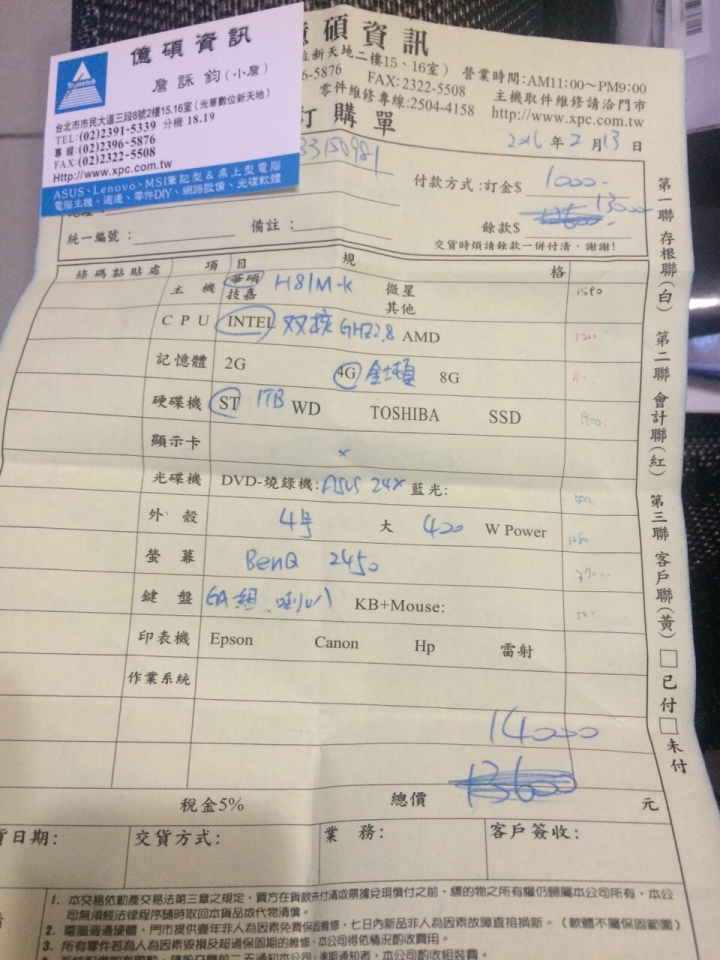 億碩資訊
詹詠鈞(小詹)
台北市市民大道三段8號2樓15.16室(光華數位新天地)
TEL:(02)2391-5339 分機 18.19
專線(02)2396-5876
FAX:(02)2322-5508
Http://www.xpc.com.tw
ASUS、Lenovo、MSI筆記型&桌上型電腦
電腦主機、週邊、零件DIY、網路設備、光碟軟體
億碩資訊
位新天地二樓15、16室) 營業時間:AM11:00~PM9:00
6-5876 FAX:2322-5508 主機取件維修請洽門市
零件維修專線:2504-4158 http://www.xpc.com.tw
訂購單
2016 年 2 月 13 日
33150981
付款方式:訂金$ 1000.
餘款$ 13600 13000
統一編號: 備註:
交貨時煩請餘款一併付清,謝謝!
條碼黏貼處 項目 規格
主機 華碩 H81M-K 微星
技嘉 其他
CPU INTEL 双核 GHZ2.8 AMD
記憶體 2G 4G 金士頓 8G
硬碟機 ST 1TB WD TOSHIBA SSD
顯示卡 x
光碟機 DVD-燒錄機:ASUS 24X 藍光:
外殼 4号 大 420 W Power
螢幕 BenQ 2450
鍵盤 GA組.喇叭 KB+Mouse:
印表機 Epson Canon Hp 雷射
作業系統
14000
13600
稅金5% 總價 元
貨日期: 交貨方式: 業務: 客戶簽收:
第一聯 存根聯(白) 第二聯 會計聯(紅) 第三聯 客戶聯(黃) □已付□未付
1. 本交易依動產交易法第三章之規定,買方在貨款未付清或票據兌現償付之前,標的物之所有權仍歸屬本公司所有,本公
司無須經法律程序隨時取回本貨品或代物清償。
2. 電腦週邊硬體、門市提供壹年非人為因素免費保固維修、七日內新品非人為因素故障直接換新。(軟體不屬保固範圍)
3. 所有零件若為人為因素毀損及超過保固期的維修、本公司得依情況酌收費用。